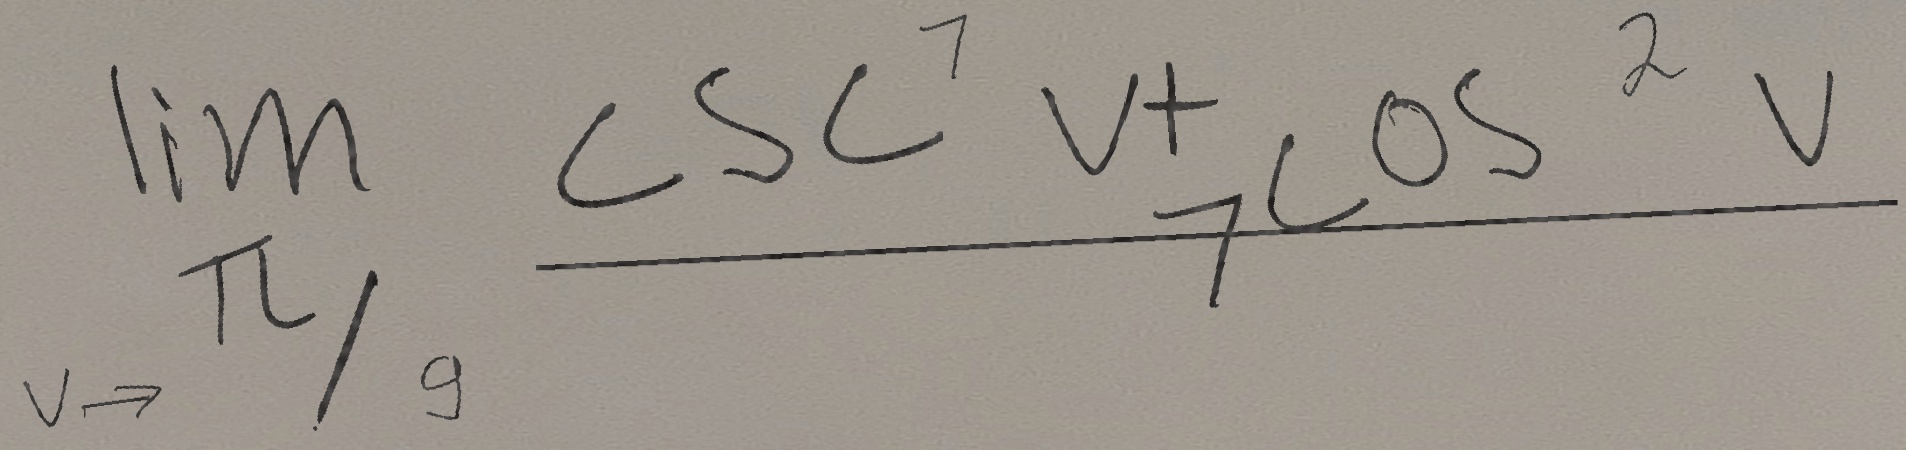 \lim_{v \to \pi/9} \frac{\csc^7 v + \cos^2 v}{7}